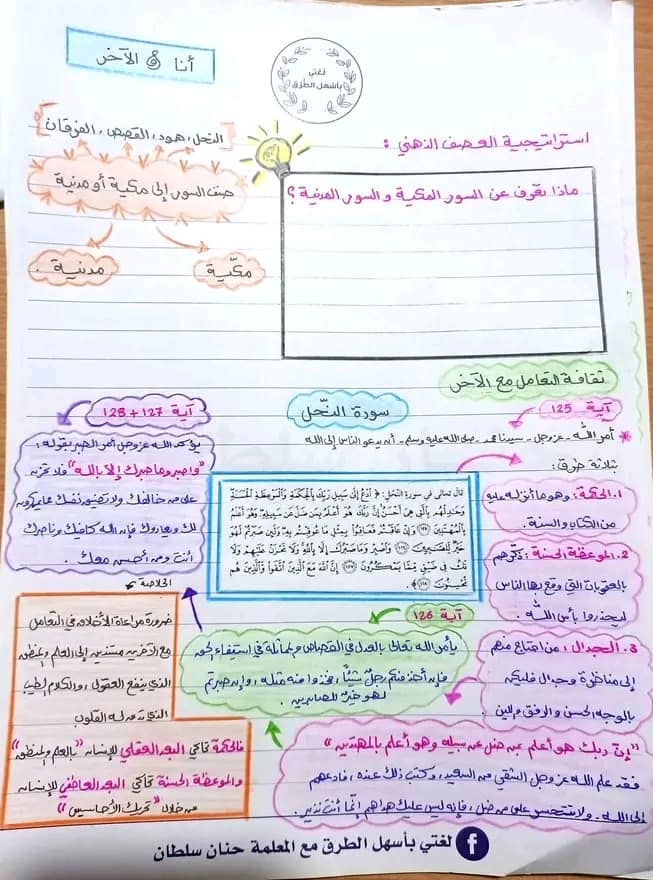 أنا و الآخر
لغتي
بأسهل الطرق
استراتيجية العصف الذهني :
ماذا تعرف عن السور المكية و السور المدنية ؟
[ النحل، هود، القصص، الفرقان ]
صنف السور إلى مكية أو مدنية
مكّية
مدنية .
ثقافة التعامل مع الآخر
سورة النّحل
آية 125
* أمر الله - عز وجل - سيدنا محمد - صلى الله عليه وسلم - أن يدعو الناس إلى الله
بثلاثة طرق :
1. الحكمة : وهو ما أنزله عليه
من الكتاب والسنة .
2. الموعظة الحسنة : ذكّرهم
بالعقوبات التي وقع بها الناس
ليحذروا بأس الله .
3. الجدال : من احتاج منهم
إلى مناظرة وجدال فليكن
بالوجه الحسن و الرفق واللين
"إن ربك هو أعلم بمن ضل عن سبيله وهو أعلم بالمهتدين"
فقد علم الله عز وجل الشقي من السعيد، وكتب ذلك عنده، فادعهم
إلى الله - ولا تتحسر على من ضل، فإنه ليس عليك هداهم إنّما أنت نذير .
قال تعالى في سورة النحل: ﴿ ادْعُ إِلَى سَبِيلِ رَبِّكَ بِالْحِكْمَةِ وَالْمَوْعِظَةِ الْحَسَنَةِ
وَجَادِلْهُم بِالَّتِي هِيَ أَحْسَنُ إِنَّ رَبَّكَ هُوَ أَعْلَمُ بِمَن ضَلَّ عَن سَبِيلِهِ وَهُوَ أَعْلَمُ
بِالْمُهْتَدِينَ (١٢٥) وَإِنْ عَاقَبْتُمْ فَعَاقِبُوا بِمِثْلِ مَا عُوقِبْتُم بِهِ وَلَئِن صَبَرْتُمْ لَهُوَ
خَيْرٌ لِّلصَّابِرِينَ (١٢٦) وَاصْبِرْ وَمَا صَبْرُكَ إِلَّا بِاللَّهِ وَلَا تَحْزَنْ عَلَيْهِمْ وَلَا
تَكُ فِي ضَيْقٍ مِّمَّا يَمْكُرُونَ (١٢٧) إِنَّ اللَّهَ مَعَ الَّذِينَ اتَّقَوا وَّالَّذِينَ هُم
مُّحْسِنُونَ (١٢٨) ﴾.
آية 126
يأمر الله تعالى بالعدل في القصاص والمماثلة في استيفاء الحق
فإن أخذ منكم رجل شيئًا، فخذوا منه مثله، وإن صبرتم
لهو خيرٌ للصابرين .
آية 127 + 128
يؤكد الله عز وجل أمر الصبر بقوله :
"واصبر وما صبرك إلا بالله" فلا تحزن
على من خالفك ولا يضيق نفسك مما يمكرون
لك ويعادوك فإن الله كافيك وناصرك
أنت ومن أحسن معك .
الخلاصة
ضرورة مراعاة الأخلاق في التعامل
مع الآخرين مستندين إلى العلم والمنطق
الذي ينفع العقول، والكلام الطيب
الذي تؤسر له القلوب
فالحكمة تحاكي البعد العقلي للإنسان "بالعلم والمنطق"
والموعظة الحسنة تحاكي البعد العاطفي للإنسان
من خلال "تحريك الأحاسيس"
لغتي بأسهل الطرق مع المعلمة حنان سلطان